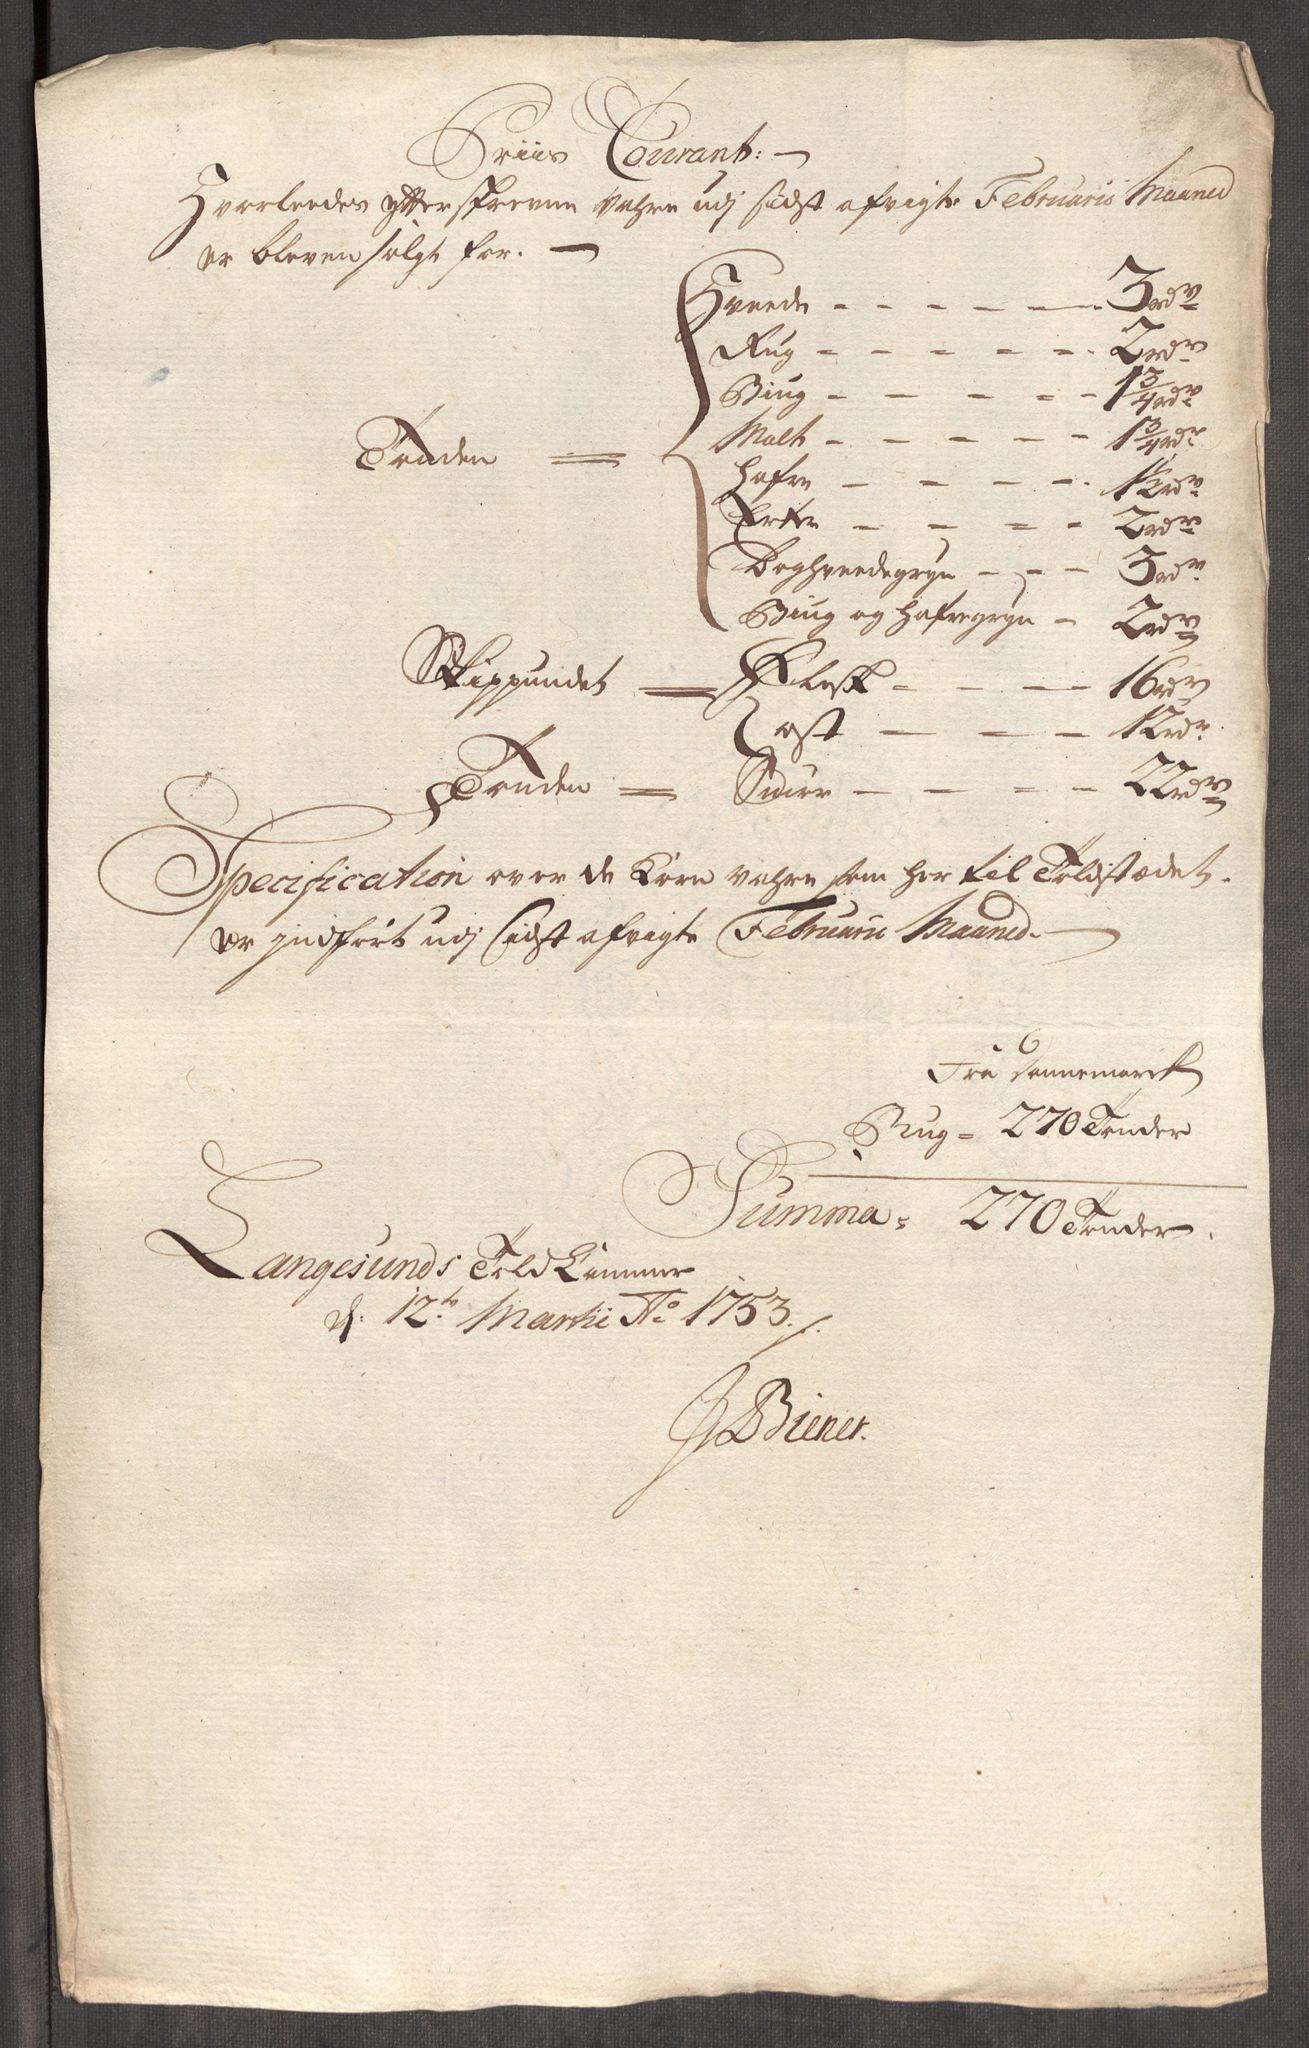 Priis Courant:
Hvorleedes efterskrevne Vahre udj sidst afvigte Februarii Maaned
er bleven solgt for.
Hveede - - - - - - 3 rdr
Rug - - - - - - 2 rdr
Biug - - - - - 1 3/4 rdr
Malt - - - - - 1 3/4 rdr
Tønden = Hafre - - - - - 1 1/2 rdr
Erter - - - - 2 rdr
Boghveedegryn - - - 3 rdr
Biug og Hafregryn - 2 rdr
Skippundet = Flesk - - - 16 rdr
Ost - - - 12 rdr
Tønden = Smør - - - - 22 rdr
Specification over de Korn vahre som her til Toldstædet
er indført udj sidst afvigte Februarii Maaned.
Fra Dannemarck
Rug = 270 Tønder
Summa = 270 Tønder.
Langesunds Told Kammer
d: 12te Martii Ao 1753.
Biener.